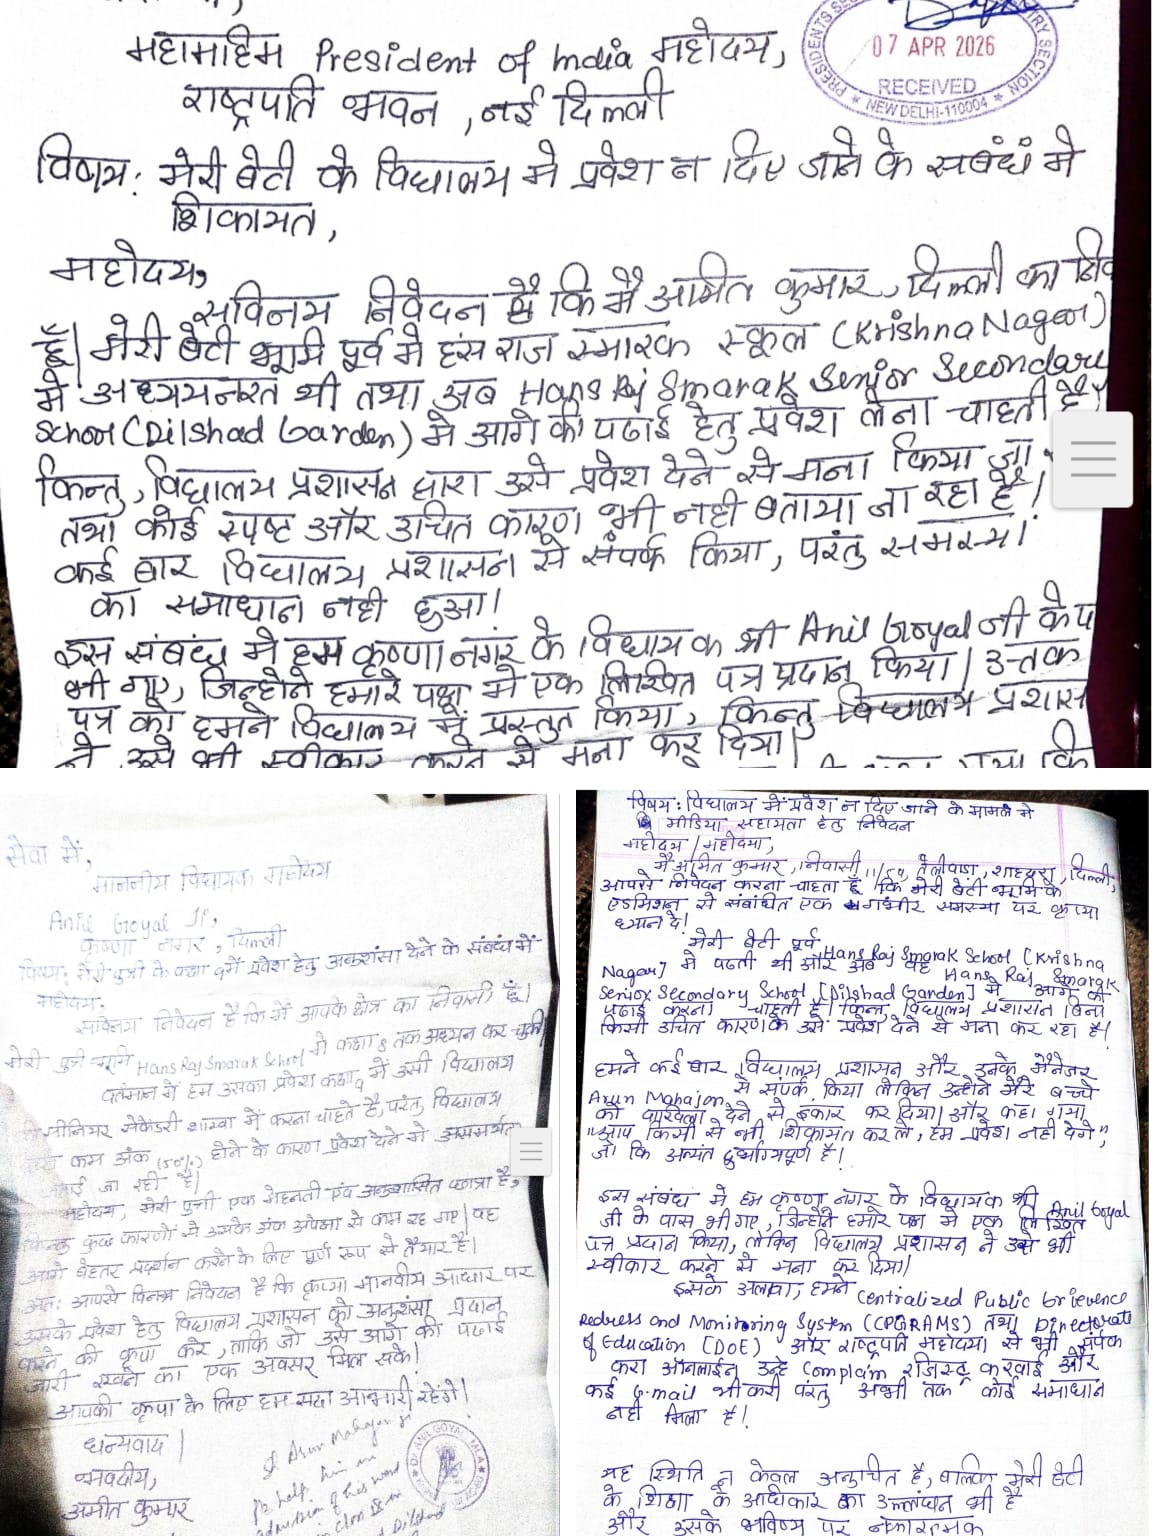 महामहिम President of India महोदय,
राष्ट्रपति भवन, नई दिल्ली
07 APR 2026
RECEIVED
NEW DELHI-110004
विषय: मेरी बेटी के विद्यालय मे प्रवेश न दिए जाने के सबंधं मे
शिकायत,
महोदय,
सविनय निवेदन है कि मै अमित कुमार, दिल्ली का
हूँ। मेरी बेटी भूमि पूर्व मे हंस राज स्मारक स्कूल (Krishna Nagar)
मे अध्ययनरत थी तथा अब Hans Raj Smarak Senior Secondary
School (Dilshad Garden) मे आगे की पढाई हेतु प्रवेश लेना चाहती है,
किन्तु, विद्यालय प्रशासन द्वारा उसे प्रवेश देने से मना किया जा
तथा कोई स्पष्ट और उचित कारण भी नही बताया जा रहा है!
कई बार विद्यालय प्रशासन से संपर्क किया, परंतु समस्या
का समाधान नही हुआ!
इस संबंध मे हम कृष्णा नगर के विधायक श्री Anil Goyal जी के
भी गए, जिन्होने हमारे पक्ष मे एक लिखित पत्र प्रदान किया। उक्त
पत्र को हमने विद्यालय में प्रस्तुत किया, किन्तु विद्यालय प्रशास
ने उसे भी स्वीकार करने से मना कर दिया।
सेवा में,
माननीय विधायक महोदय
Anil Goyal Ji,
कृष्णा नगर, दिल्ली
विषय: मेरी पुत्री के कक्षा 9 में प्रवेश हेतु अनुशंसा देने के संबंध में
महोदय,
सविनय निवेदन है कि मैं आपके क्षेत्र का निवासी हूँ।
मेरी पुत्री भूमि Hans Raj Smarak School में कक्षा 8 तक अध्यन कर चुकी
वर्तमान में हम उसका प्रवेश कक्षा 9 में उसी विद्यालय
सीनियर सेकेंडरी शाखा में करना चाहते है, परंतु विद्यालय
कम अंक (50%) होने के कारण प्रवेश देने मे असमर्थता
जताई जा रही है।
महोदय, मेरी पुत्री एक मेहनती एवं अनुशासित छात्रा है,
किन्तु कुछ कारणों से उसके अंक अपेक्षा से कम रह गए। वह
आगे बेहतर प्रदर्शन करने के लिए पूर्ण रूप से तैयार है।
अत: आपसे विनम्र निवेदन है कि कृपया मानवीय आधार पर
उसके प्रवेश हेतु विद्यालय प्रशासन को अनुशंसा प्रदान
करने की कृपा करे, ताकि उसे आगे की पढाई
जारी रखने का एक अवसर मिल सके।
आपकी कृपा के लिए हम सदा आभारी रहेंगे।
धन्यवाद।
भवदीय,
अमीत कुमार
Arun Mahajan Ji
help him in
admission of his ward
in Class IX in
Dilshad
DR. ANIL GOYAL
विषय: विद्यालय में प्रवेश न दिए जाने के मामले मे
मीडिया सहायता हेतु निवेदन
महोदय/महोदया,
मै अमित कुमार, निवासी 11/54, तेलीवाडा, शाहदरा, दिल्ली,
आपसे निवेदन करना चाहता हूँ कि मेरी बेटी भूमि के
एडमिशन से संबंधित एक गंभीर समस्या पर कृप्या
ध्यान दे!
मेरी बेटी पूर्व Hans Raj Smarak School [Krishna
Nagar] मे पढती थी और अब वह Hans Raj Smarak
Senior Secondary School [Dilshad Garden] मे आगे की
पढाई करना चाहती है। किन्तु विद्यालय प्रशासन बिना
किसी उचित कारण के उसे प्रवेश देने से मना कर रहा है।
हमने कई बार विद्यालय प्रशासन और उनके मैनेजर
Arun Mahajan से संपर्क किया लेकिन उन्होने मेरे बच्चे
को दाखिला देने से इंकार कर दिया। और कहा गया
"आप किसी से भी शिकायत कर ले, हम प्रवेश नही देगे",
जो कि अत्यंत दुर्भाग्यपूर्ण है!
इस संबंध मे हम कृष्णा नगर के विधायक श्री Anil Goyal
जी के पास भी गए, जिन्होने हमारे पक्ष मे एक लिखित
पत्र प्रदान किया, लेकिन विद्यालय प्रशासन ने उसे भी
स्वीकार करने से मना कर दिया।
इसके अलावा, हमने Centralized Public Grievence
Redress and Monitoring System (CPGRAMS) तथा Directorate
of Education (DOE) और राष्ट्रपति महोदया से भी संर्पक
करा ऑनलाईन उन्हे Complain रजिस्ट्र करवाई और
कई G-mail भी करी परंतु अभी तक कोई समाधान
नही मिला है!
यह स्थिति न केवल अनुचित है, बल्कि मेरी बेटी
के शिक्षा के अधिकार का उल्लंघन भी है
और उसके भविष्य पर नकारात्मक